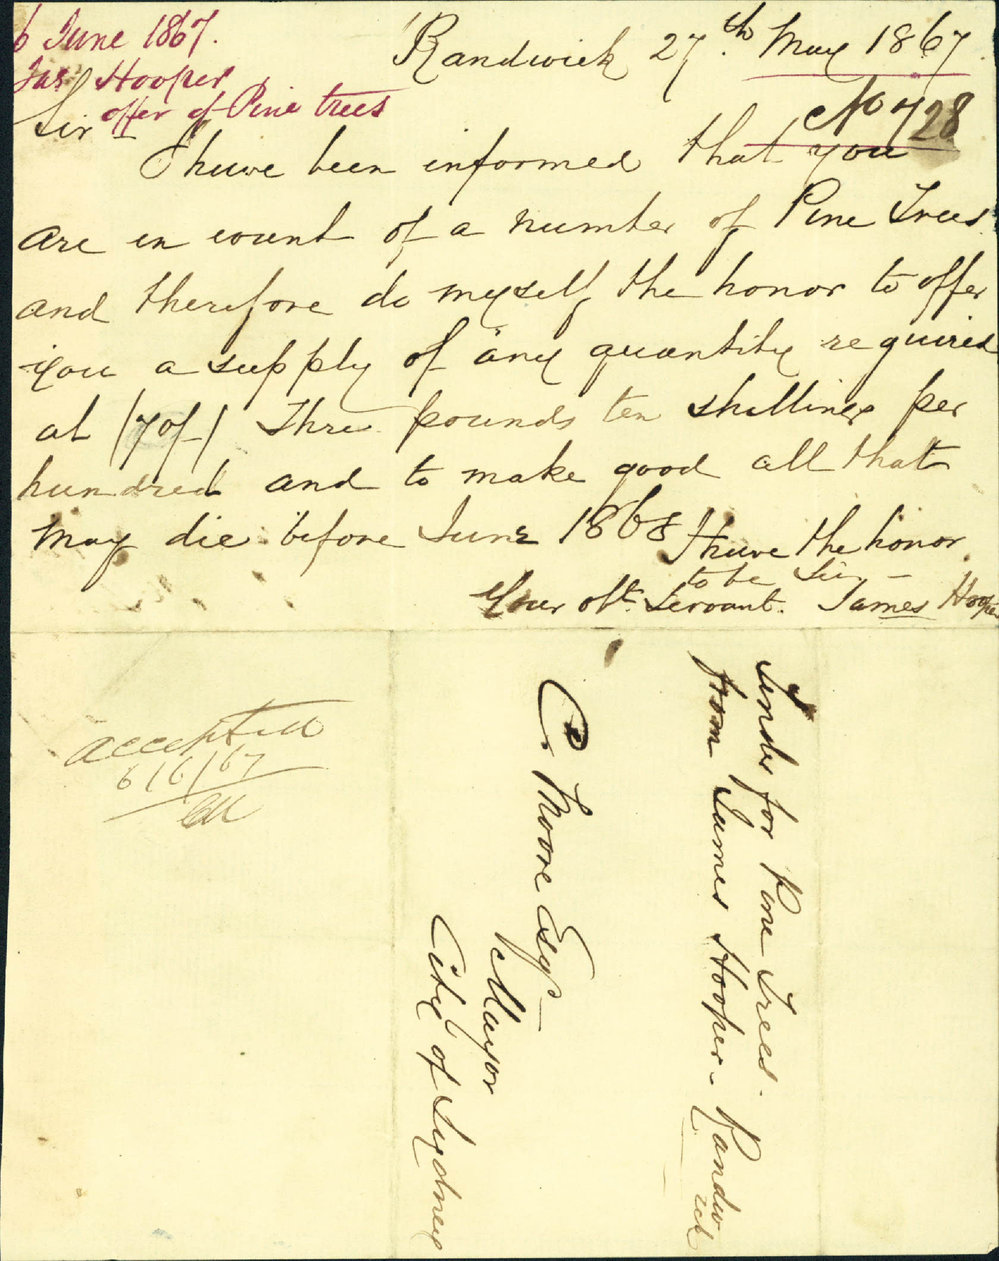 6 June 1867.
Jas Hooper
offer of Pine trees
Randwick 27th May 1867
No 728
Sir
I have been informed that you
are in want of a number of Pine Trees
and therefore do myself the honor to offer
you a supply of any quantity required
at (70/-) Three pounds ten shillings per
hundred and to make good all that
may die before June 1868 I have the honor
to be Sir
Your obt. Servant. James Hooper
accepted
6/6/67
CM
C. Moore Esqr
Mayor
City of Sydney
Tender for Pine Trees.
from James Hooper - Randwick